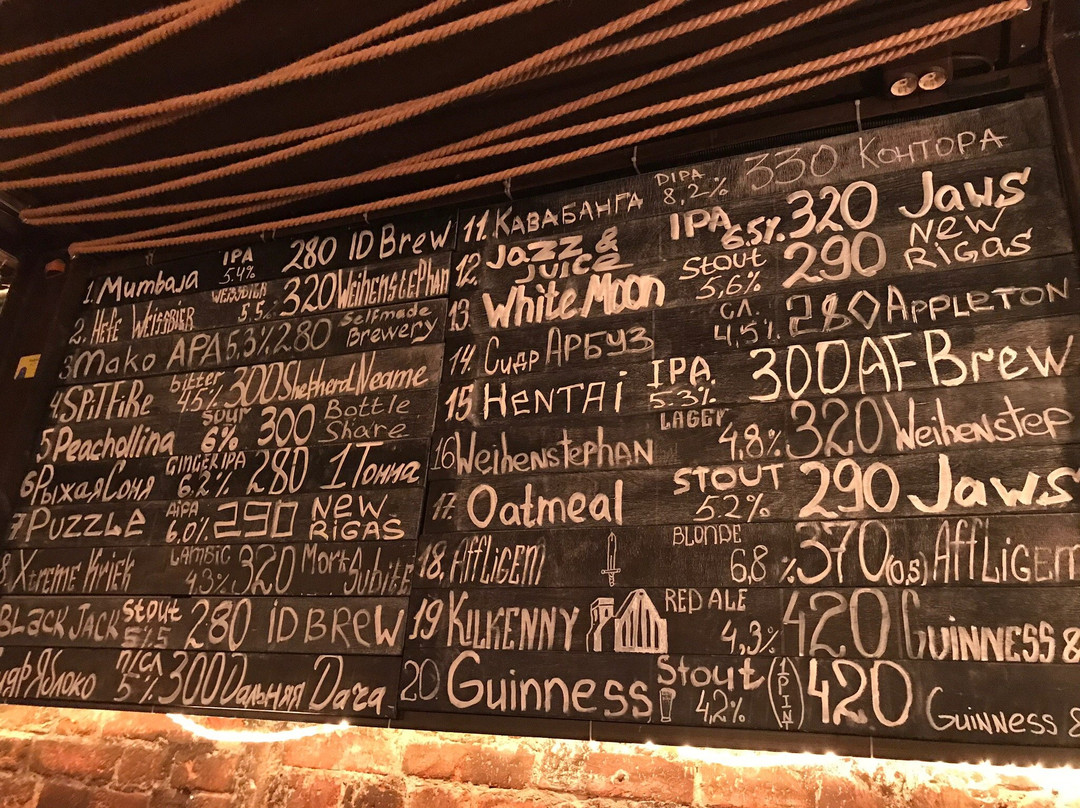 1. Mumbaja IPA 5.4% 280 IDBrew
2. Hefe Weissbier WEISSBIER 5.5% 320 Weihenstephan
3 Mako APA 5,3% 280 Selfmade Brewery
4. SPiTFiRe bitter 4.5% 300 Shepherd Neame
5 Peachollina SOUR 6% 300 Bottle Share
6 Рыжая Соня GINGER IPA 6.2% 280 1 Тонна
7 PUZZLE AIPA 6.0% 290 NEW RiGAS
8. Xtreme Kriek LAMBIC 4.3% 320 Mort Subite
BLACK JACK stout 5% 280 iDBREW
Сидр Яблоко П/СЛ 5% 300 Дальняя Дача
11. КАВАБАНГА DIPA 8,2% 330 КОНТОРА
12. JAZZ & JUICE IPA 6.5% 320 JAWS
13. White Moon Stout 5,6% 290 NEW RIGAS
14. Сидр АРБУЗ СЛ. 4,5% 280 APPLETON
15. HENTAi IPA 5.3% 300 AF Brew
16 Weihenstephan LAGER 4,8% 320 Weihenstep
17. Oatmeal STOUT 5.2% 290 Jaws
18. AffLigem BLONDE 6,8% 370 (0,5) AffLigem
19 KILKENNY RED ALE 4,3% 420 GUINNESS &
20 Guinness Stout 4,2% (1 PINT) 420 Guinness &